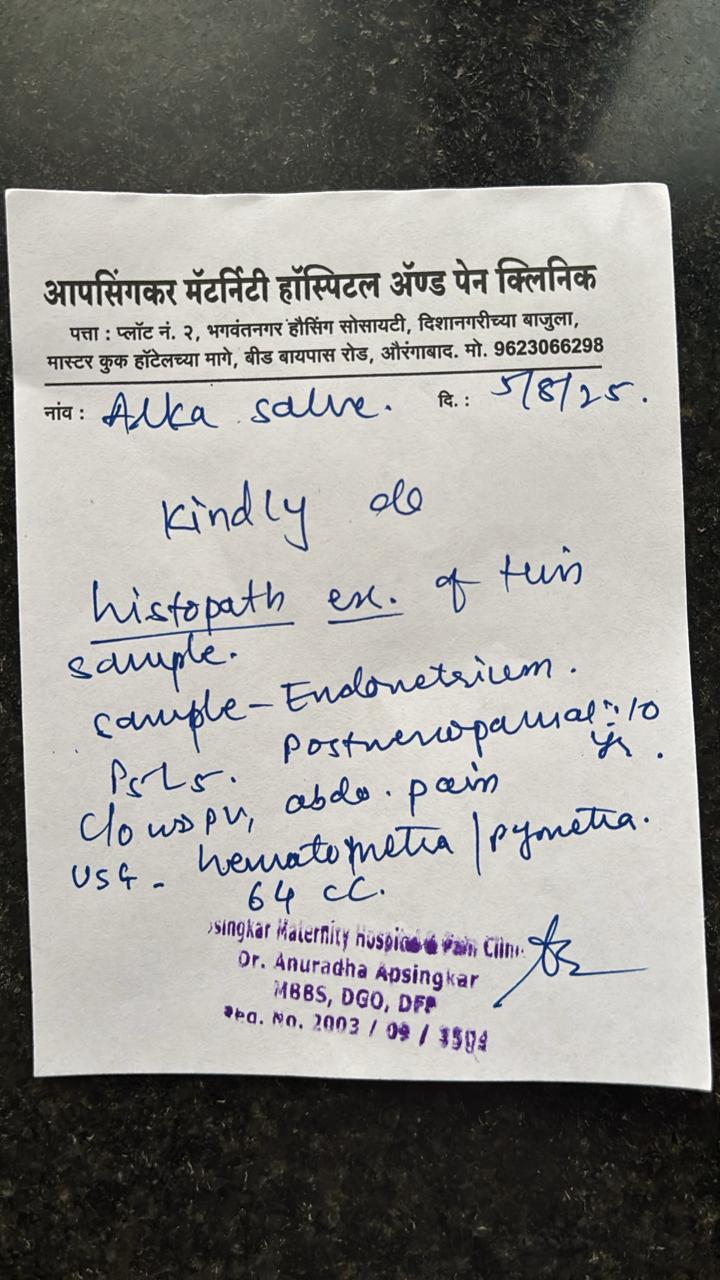 आपसिंगकर मॅटर्निटी हॉस्पिटल ॲण्ड पेन क्लिनिक
पत्ता : प्लॉट नं. २, भगवंतनगर हौसिंग सोसायटी, दिशानगरीच्या बाजुला,
मास्टर कुक हॉटेलच्या मागे, बीड बायपास रोड, औरंगाबाद. मो. 9623066298
नांव : Alka salve. दि. : 5/8/25.
Kindly do
histopath ex. of this
sample.
sample - Endometrium.
P5L5. Postmenopausal :- 10
yr.
C/o WDPV, abdo. pain
USG - hematometra / pyometra.
64 cc.
singkar Maternity Hospital & Pain Clini
Dr. Anuradha Apsingkar
MBBS, DGO, DFP
Reg. No. 2003 / 09 /